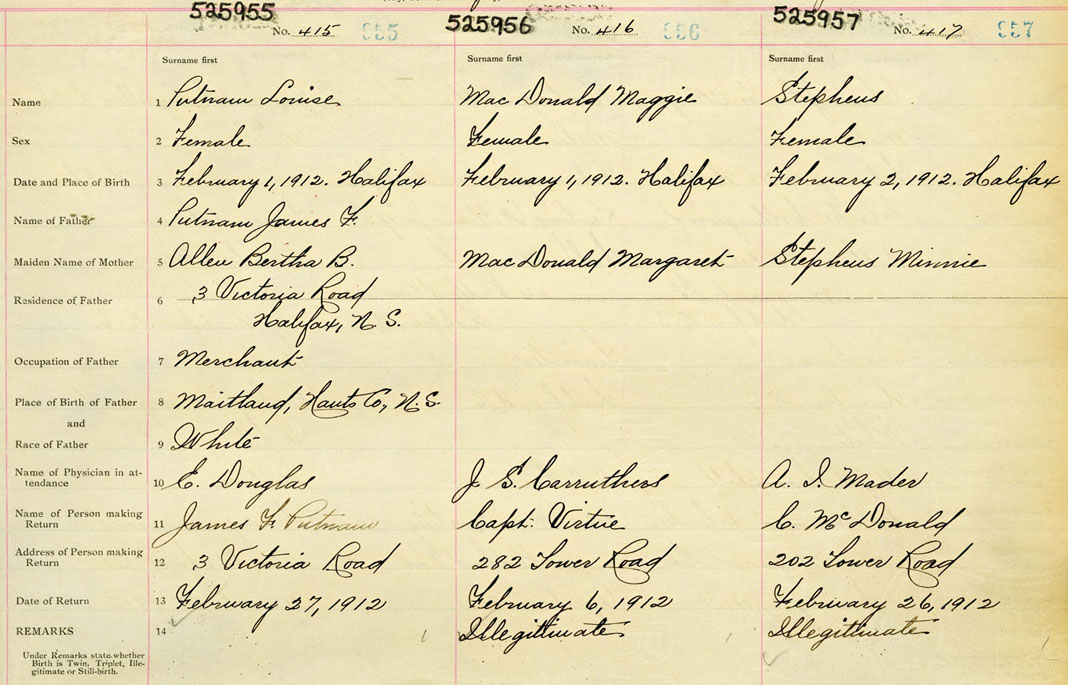 525955 525956 525957
No. 415 355 No. 416 356 No. 417 357
Surname first Surname first Surname first
Name 1 Putnam Louise Mac Donald Maggie Stephens
Sex 2 Female Female Female
Date and Place of Birth 3 February 1, 1912. Halifax February 1, 1912. Halifax February 2, 1912. Halifax
Name of Father 4 Putnam James F.
Maiden Name of Mother 5 Allen Bertha B. Mac Donald Margaret Stephens Minnie
Residence of Father 6 3 Victoria Road
Halifax, N S.
Occupation of Father 7 Merchant
Place of Birth of Father 8 Maitland, Hants Co, N.S.
and
Race of Father 9 White
Name of Physician in at-
tendance 10 E. Douglas J S. Carruthers A. I. Mader
Name of Person making
Return 11 James F Putnam Capt. Virtue C. McDonald
Address of Person making
Return 12 3 Victoria Road 282 Tower Road 202 Tower Road
Date of Return 13 February 27, 1912 February 6, 1912 February 26, 1912
REMARKS 14 Illegitimate Illegitimate
Under Remarks state whether
Birth is Twin, Triplet, Ille-
gitimate or Still-birth.